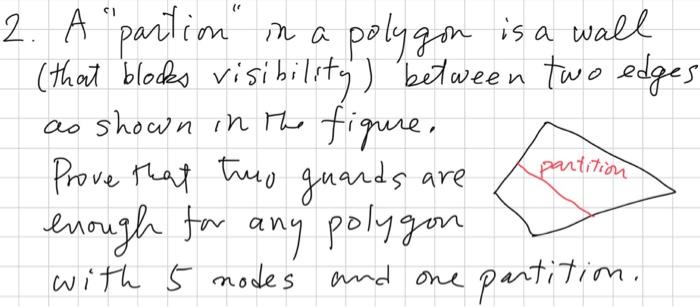 2. A "partion" in a polygon is a wall
(that blocks visibility) between two edges
as shown in the figure.
partition
Prove that two guards are
enough for any polygon
with 5 nodes and one partition.